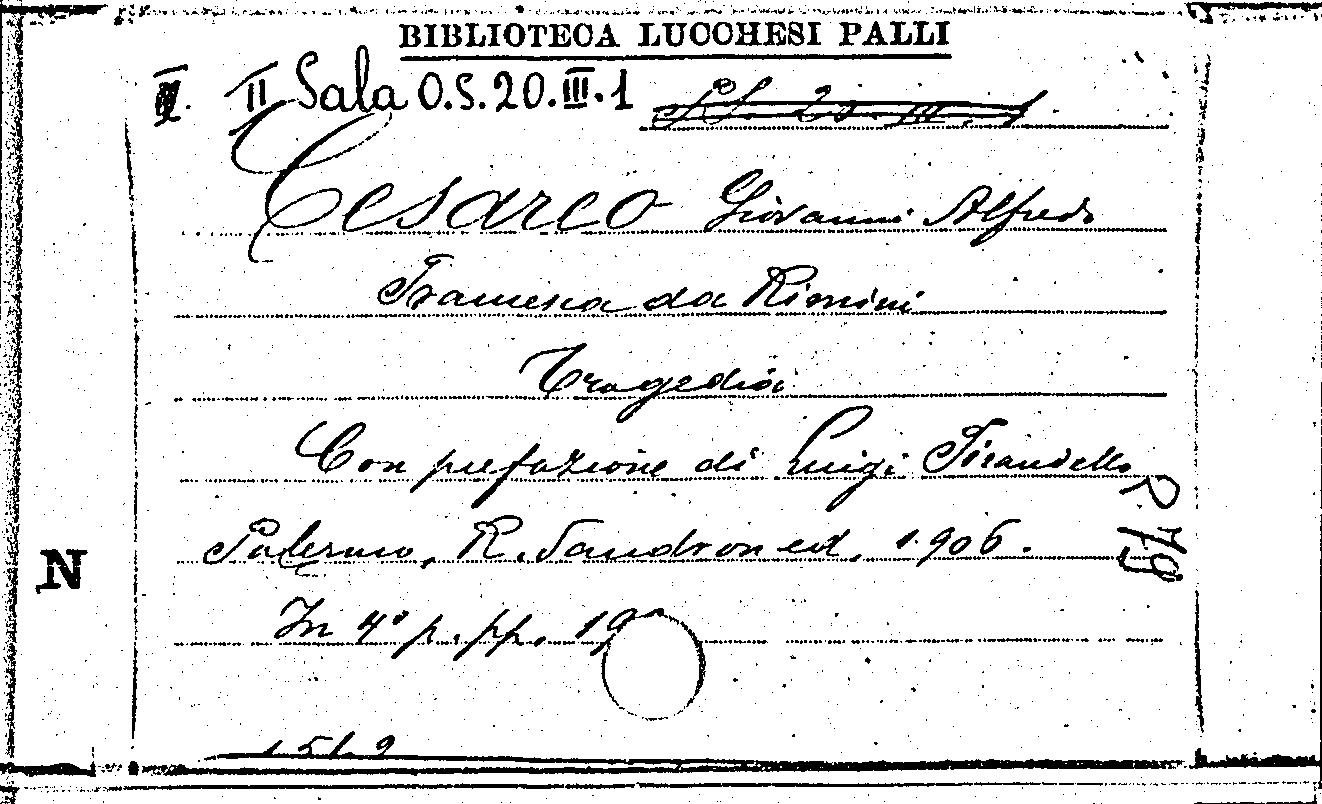 BIBLIOTECA LUCCHESI PALLI
II Sala O.S.20.III.1
Cesareo Giovanni Alfredo
Francesca da Rimini
Tragedia
Con prefazione di Luigi Pirandello
Palermo, R. Sandron ed. 1906.
In 4º p. pp. 19
N